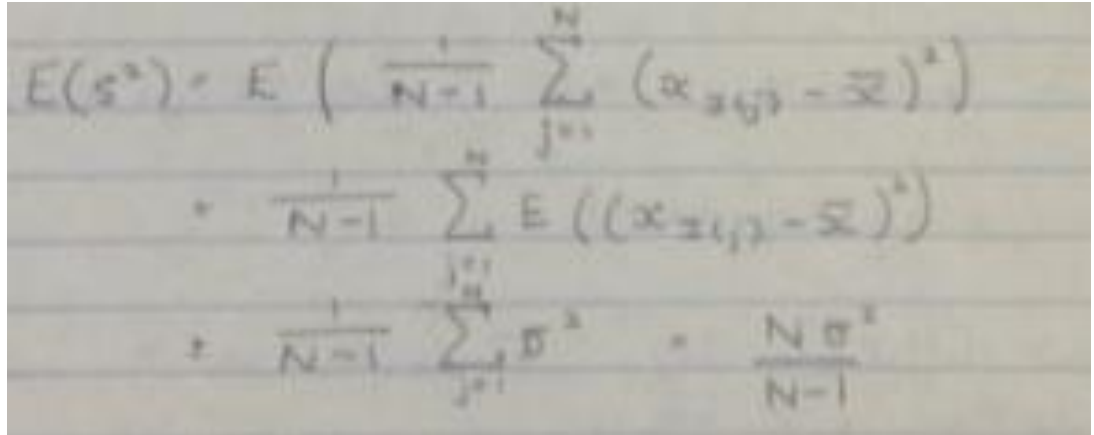 E(s²) = E ( 1/(N-1) ∑_{j=1}^{N} (x_{I(j)} - x̄)² )
= 1/(N-1) ∑_{j=1}^{N} E ((x_{I(j)} - x̄)²)
= 1/(N-1) ∑_{j=1}^{N} σ² = Nσ²/(N-1)